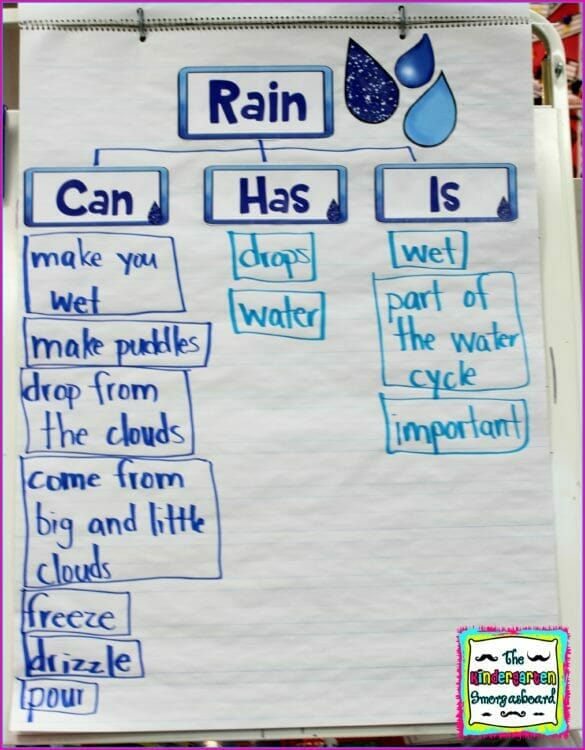 Rain
Can
Has
Is
make you
wet
make puddles
drop from
the clouds
come from
big and little
clouds
freeze
drizzle
pour
drops
water
wet
part of
the water
cycle
important
The
Kindergarten
Smorgasboard